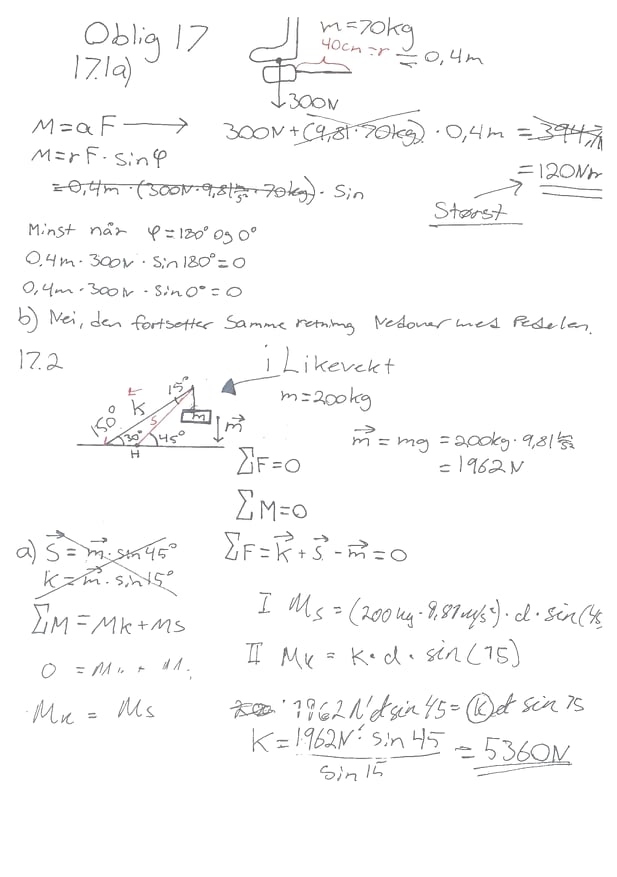 Oblig 17
m=70kg
17.1a)
40cm=r = 0,4m
300N
M=aF → 300N+(9,81·70kg)·0,4m = 3944,
M=rF·sinφ = 120Nm
=0,4m·(300N·9,81m/s²·70kg)·Sin
Størst
Minst når φ=180° og 0°
0.4m·300N·Sin180°=0
0,4m·300N·Sin0°=0
b) Nei, den fortsetter Samme retning Nedover med Pedalen.
17.2
i Likevekt
m=200kg
15°
k
150°
S
m
30°
45°
H
m⃗
m⃗ = mg = 200kg·9,81m/s²
= 1962N
ΣF=0
ΣM=0
a) S⃗ = m⃗·sin45°
ΣF=k⃗+s⃗-m⃗=0
k=m⃗·sin15°
ΣM=Mk+Ms
I Ms=(200kg·9,81m/s²)·d·sin(45
0 = M
II Mk = k·d·sin(15)
Mk = Ms
1962N·d sin45=(k)d sin 15
K=1962N·sin 45 / sin 15 = 5360N